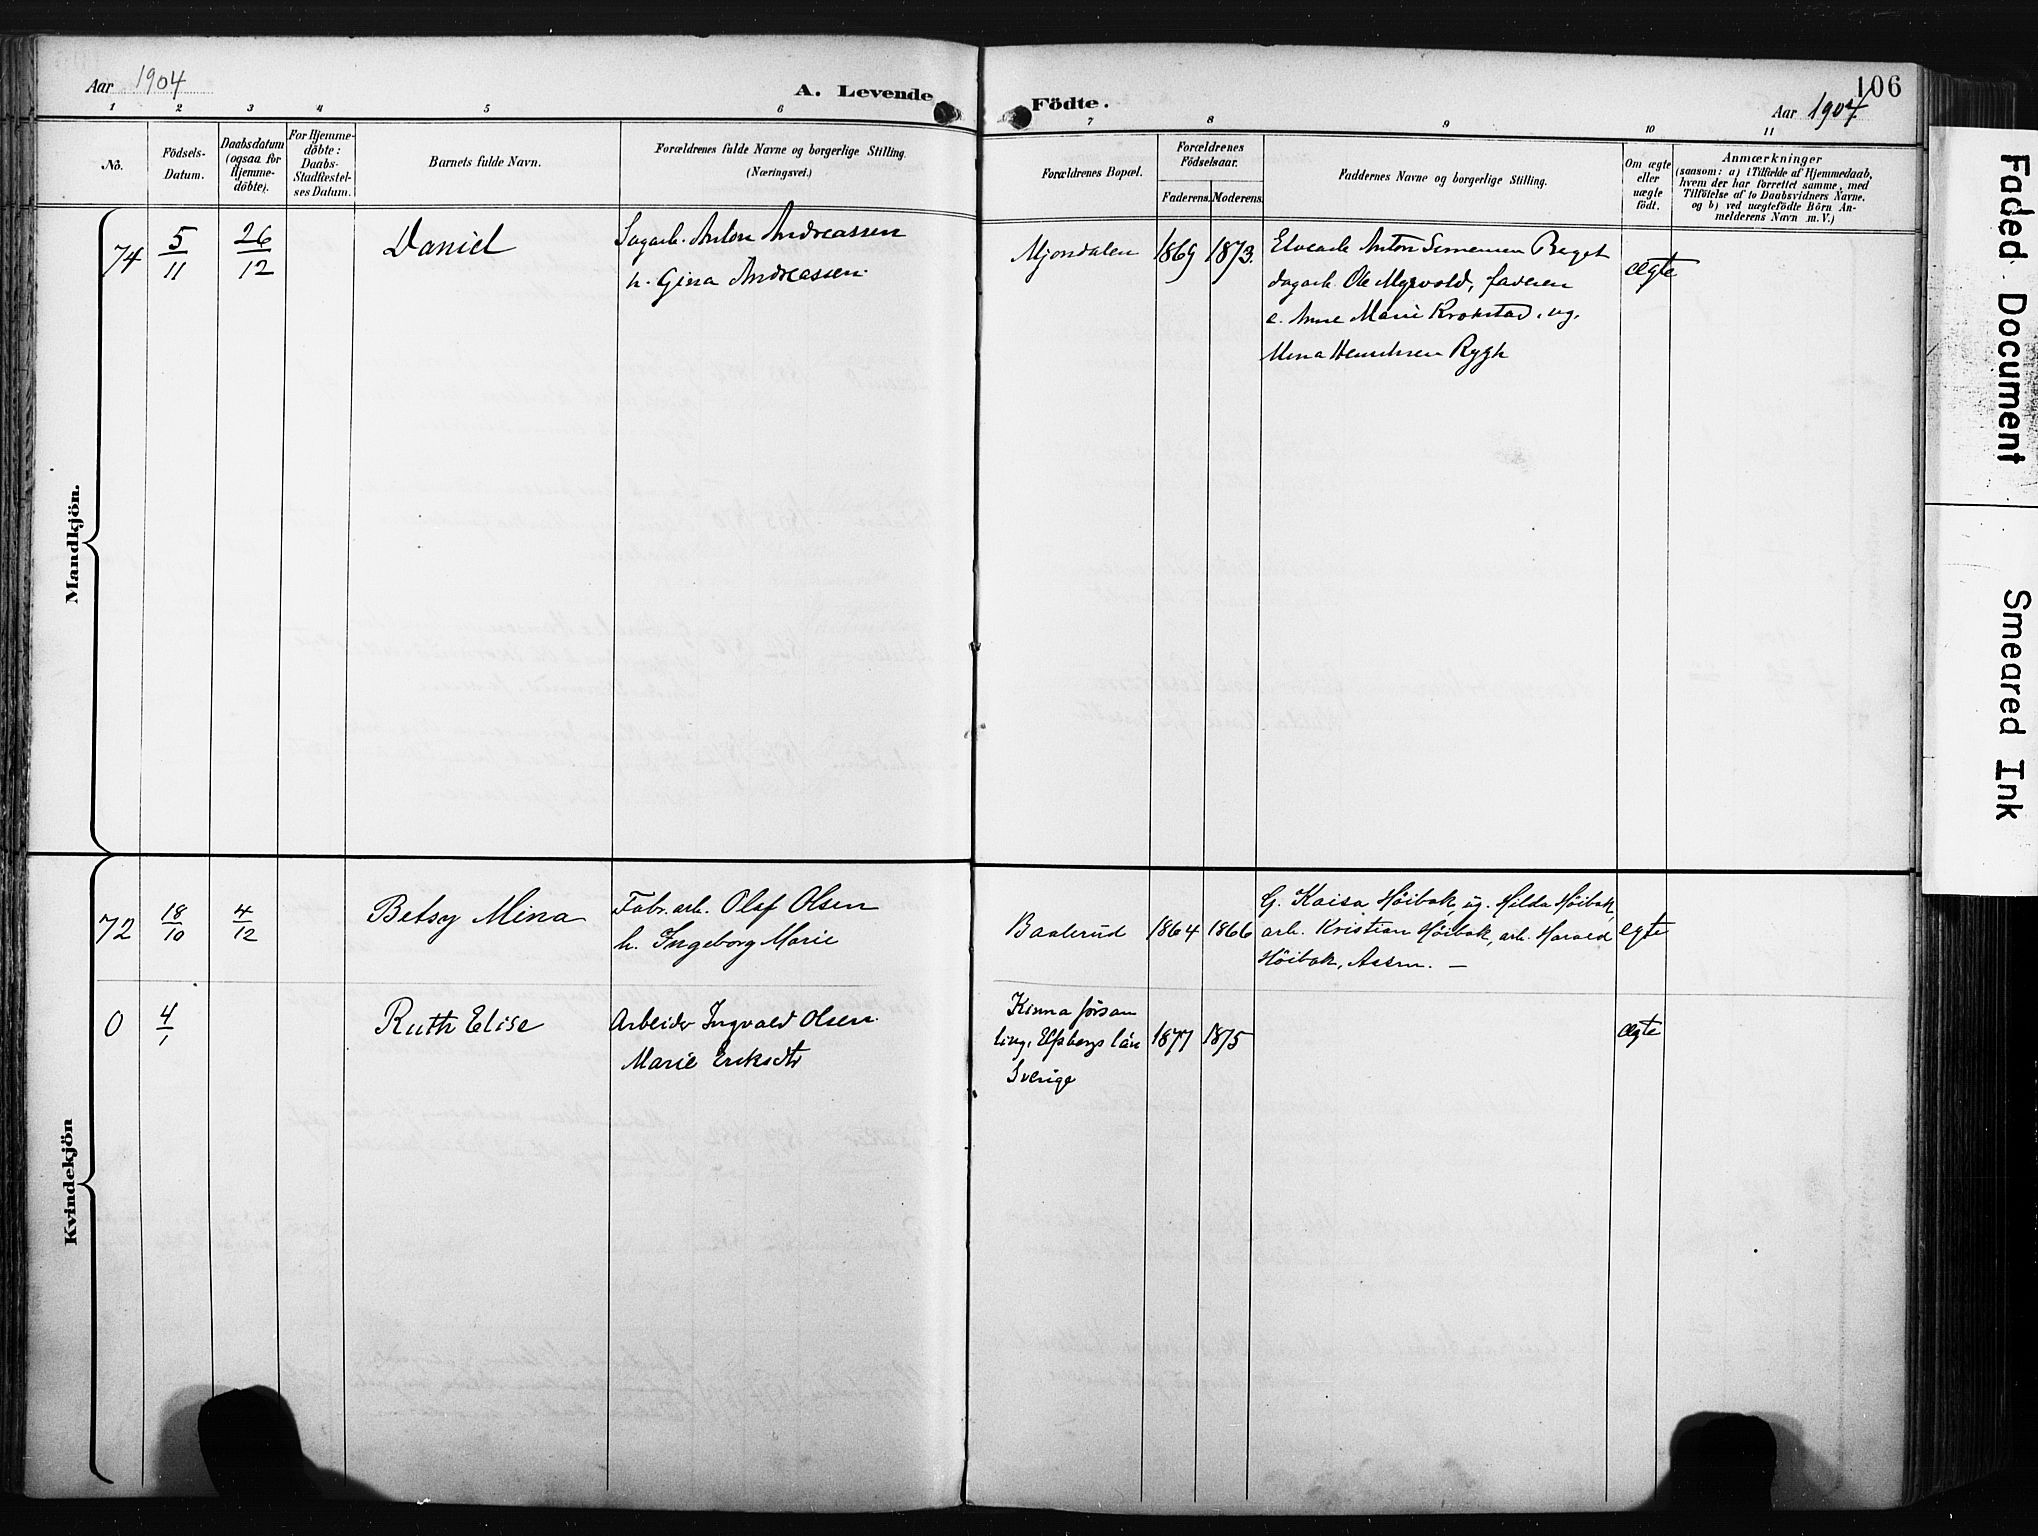 Aar 1904
A. Levende Födte.
106
Aar 1904
1 2 3 4 5 6 7 8 9 10 11
No.
Födsels-
Datum.
Daabsdatum
(ogsaa for
Hjemme-
döbte).
For Hjemme-
döbte:
Daabs-
Stadfæstel-
ses Datum.
Barnets fulde Navn.
Forældrenes fulde Navne og borgerlige Stilling.
(Næringsvei.)
Forældrenes Bopæl.
Forældrenes
Födselsaar.
Faderens. Moderens.
Faddernes Navne og borgerlige Stilling.
Om ægte
eller
uægte
født.
Anmærkninger
(saasom: a) i Tilfælde af Hjemmedaab,
hvem der har forrettet samme, med
Tilföielse af to Daabsvidners Navne.
og b) ved uægtefödte Börn An-
melderens Navn m. V.)
Mandkjön.
74 5/11 26/12 Daniel Sagarb. Anton Andreassen
h. Gina Andreassen.
Mjondalen 1869 1873.
Anton Simensen
Ole Myrvold, faderen
Anne Marie Krokstad, ug.
Mina Henriksen Rygh
ægte
Kvindekjön
72 18/10 4/12 Betsy Mina Fabr. arb. Olaf Olsen
h. Ingeborg Marie
1864 1866
G. Kaisa Höibak, ug. Hilda Höibak,
arb. Kristian Höibak, arb. Harald
Höibak, Assen. —
egte
0 4/1 Ruth Elise Arbeider Ingvald Olsen.
Marie Eriksdtr
Kinna församling, Elfsborgs län
Sverige
1877 1875
ægte
Faded Document
Smeared Ink